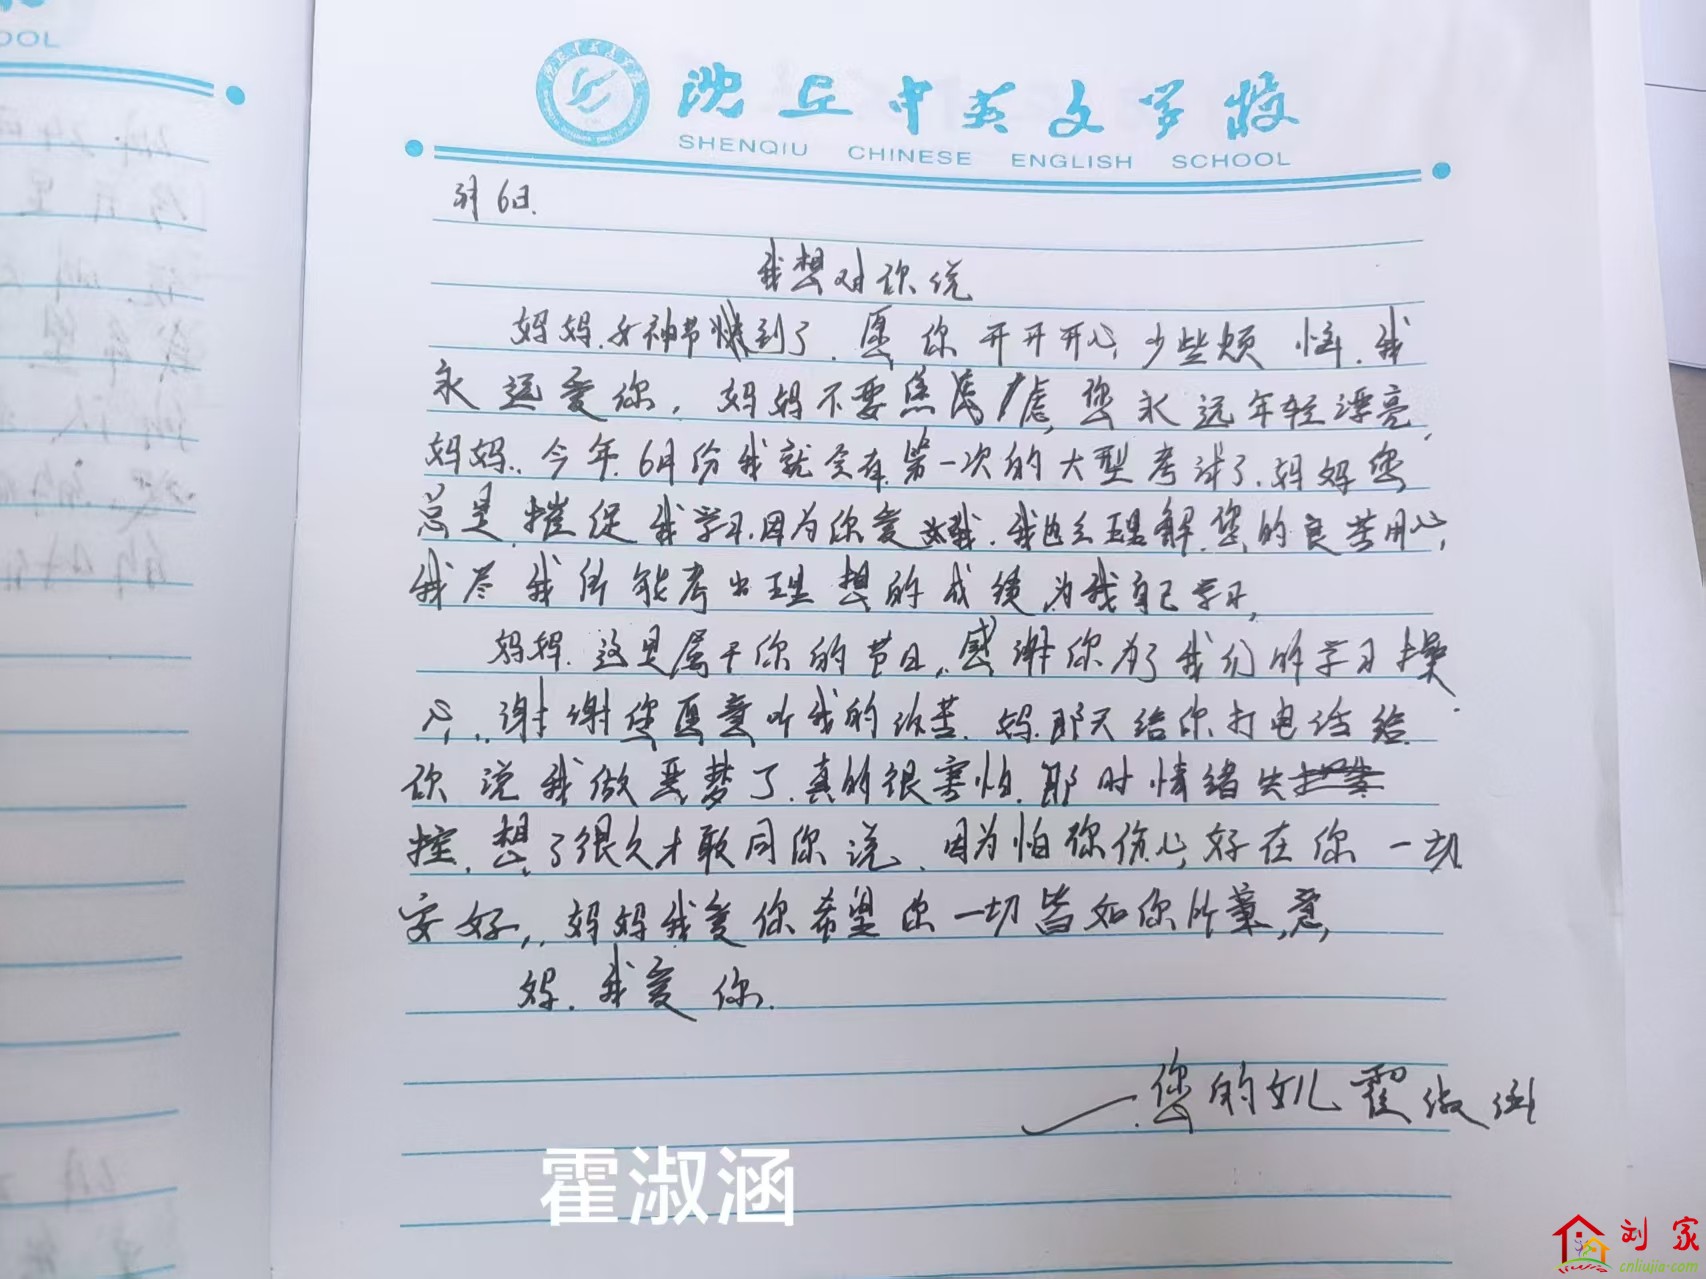 沈丘中英文学校
SHENQIU CHINESE ENGLISH SCHOOL
3月6日.
我想对你说
妈妈.女神节快到了.愿你开开开心,少些烦恼.我
永远爱你,妈妈不要焦虑,您永远年轻漂亮,
妈妈..今年.6月份我就会有第一次的大型考试了.妈妈您
总是摧促我学习.因为你爱我.我也会理解.您的良苦用心,
我尽我所能考出理想的成绩,为我自己学习,
妈妈.这是属于你的节日,.感谢你为了我们的学习操
心,..谢谢您愿意听我的诉苦.妈.那天给你打电话给
你说我做恶梦了.真的很害怕.那时情绪失
控,想了很久才敢同你说.因为怕你伤心,好在你一切
安好,.妈妈我爱你希望你一切皆如你所意,
妈.我爱你.
您的女儿霍淑涵
霍淑涵
刘家
cnliujia.com
OOL